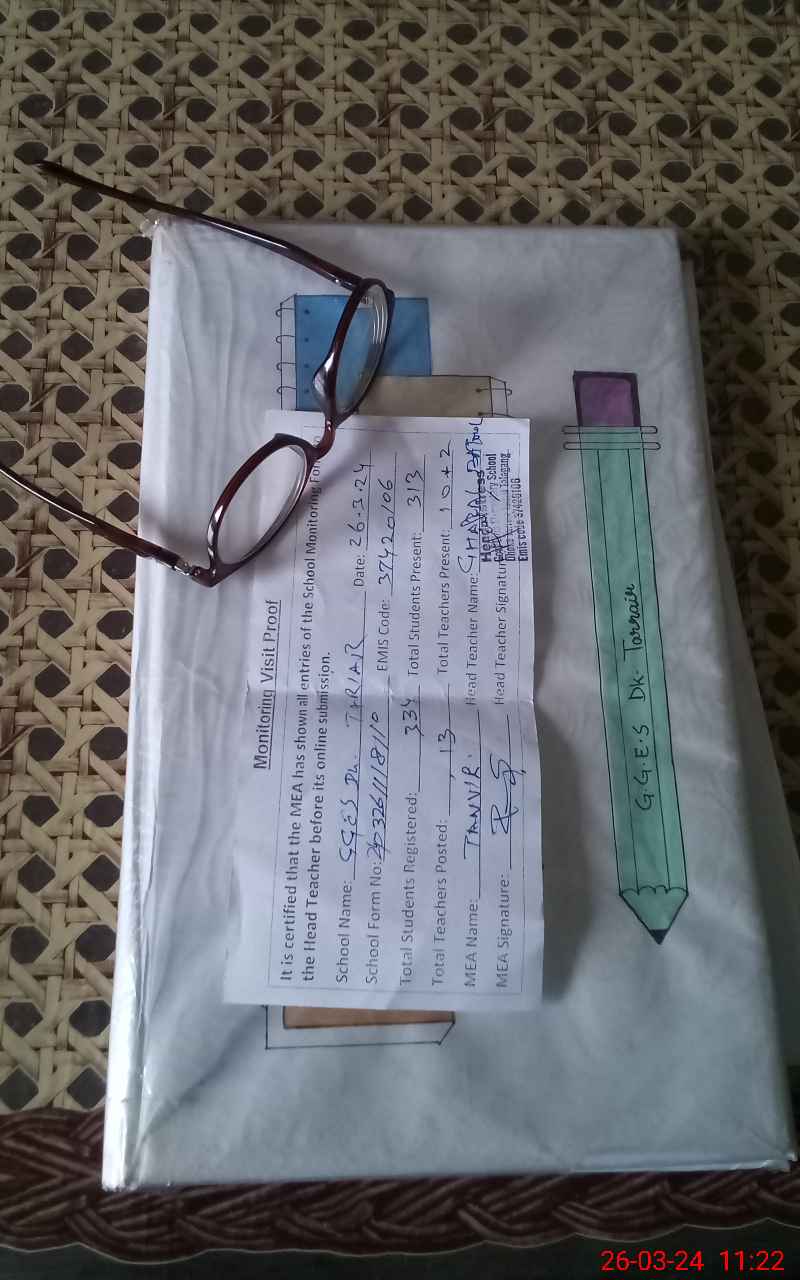 Monitoring Visit Proof
It is certified that the MEA has shown all entries of the School Monitoring Form to
the Head Teacher before its online submission.
School Name: GGES Dk. TARIAR Date: 26.3.24
School Form No: EMIS Code: 37420106
Total Students Registered: 334 Total Students Present: 313
Total Teachers Posted: 13 Total Teachers Present: 10+2
MEA Name: TANVIR. Head Teacher Name:
MEA Signature: Head Teacher Signature
Headmistress
School
Talagang
Emis code 37420106
G.G.E.S Dk. Tarrair
26-03-24 11:22